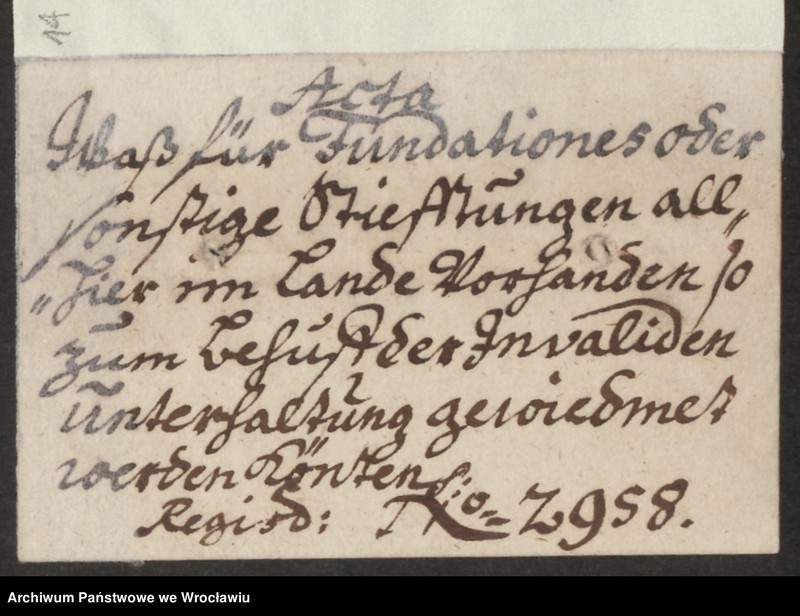 14
Acta
Waß für Fundationes oder
sonstige Stiefftungen all„
„hier im Lande Vorhanden so
zum behuff der Invaliden
unterhaltung gewiedmet
werden könten
Regisd: No= 2958.
Archiwum Państwowe we Wrocławiu